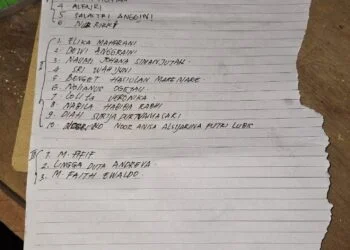 4 ALFAJRI
5 SULASTRI ANGGINI
6
1. ELIKA MAHARANI
2. DEWI ANGGRAINI
3. NAUMI JOHANA SIMANJUTAK
4 SRI WAHJUNI
5 BENGET HASIOLAN MARE NARE
6. NOHANUS
7 LOLITA VERONIKA
8 NABILA HABIBA RABHI
9 DIAH SURIJA
10 NOOR ANISA ALSJARINA PUTRI LUBIS
1. M. AFIF
2. LINGGA DUTA ANDREVA
3. M FAITH EWALDO